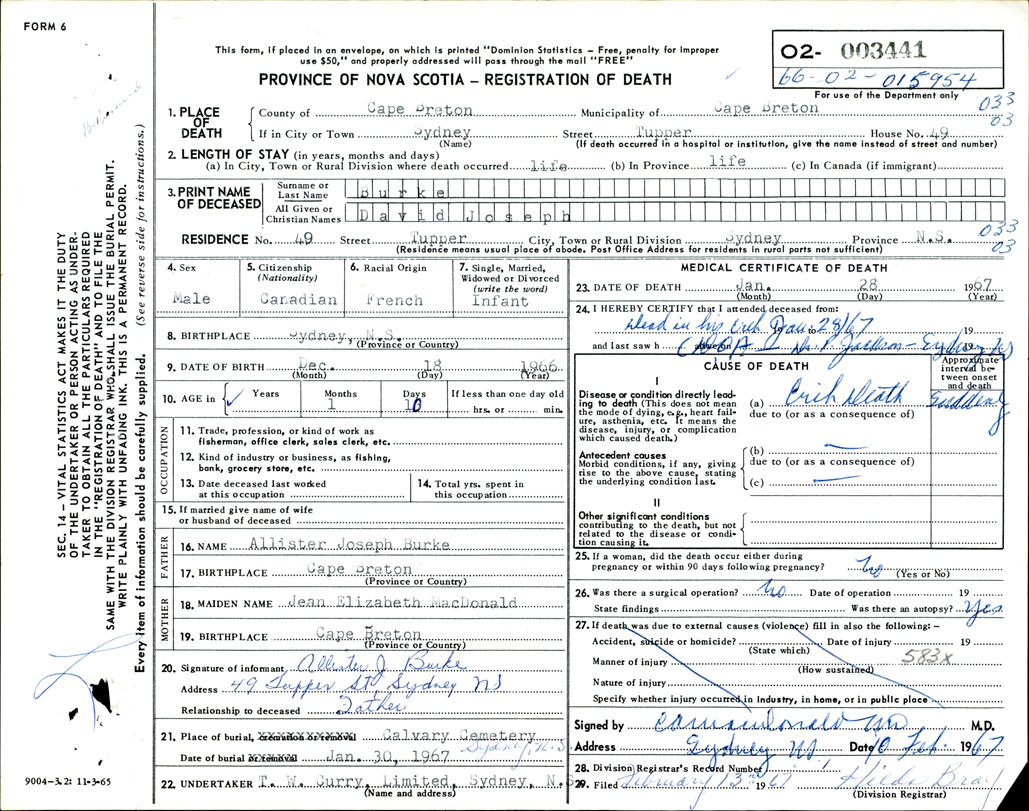 FORM 6
This form, if placed in an envelope, on which is printed "Dominion Statistics – Free, penalty for improper
use $50," and properly addressed will pass through the mail "FREE"
PROVINCE OF NOVA SCOTIA – REGISTRATION OF DEATH
02- 003441
66-02-015954
For use of the Department only
033
03
1. PLACE OF DEATH
County of Cape Breton Municipality of Cape Breton
If in City or Town Sydney Street Tupper House No. 49
(Name) (If death occurred in a hospital or institution, give the name instead of street and number)
2. LENGTH OF STAY (in years, months and days)
(a) In City, Town or Rural Division where death occurred life (b) In Province life (c) In Canada (if immigrant)
3. PRINT NAME OF DECEASED
Surname or Last Name Burke
All Given or Christian Names David Joseph
033
03
RESIDENCE No. 49 Street Tupper City, Town or Rural Division Sydney Province N.S.
(Residence means usual place of abode. Post Office Address for residents in rural parts not sufficient)
4. Sex
Male
5. Citizenship
(Nationality)
Canadian
6. Racial Origin
French
7. Single, Married,
Widowed or Divorced
(write the word)
Infant
8. BIRTHPLACE Sydney, N.S.
(Province or Country)
9. DATE OF BIRTH Dec. 18 1966
(Month) (Day) (Year)
10. AGE in Years Months Days If less than one day old
1 10 hrs. or min.
OCCUPATION
11. Trade, profession, or kind of work as
fisherman, office clerk, sales clerk, etc.
12. Kind of industry or business, as fishing,
bank, grocery store, etc.
13. Date deceased last worked
at this occupation
14. Total yrs. spent in
this occupation
15. If married give name of wife
or husband of deceased
FATHER
16. NAME Allister Joseph Burke
17. BIRTHPLACE Cape Breton
(Province or Country)
MOTHER
18. MAIDEN NAME Jean Elizabeth MacDonald
19. BIRTHPLACE Cape Breton
(Province or Country)
20. Signature of informant Allister J. Burke
Address 49 Tupper St. Sydney NS
Relationship to deceased Father
21. Place of burial, cremation or removal Calvary Cemetery
Sydney, N.S.
Date of burial or removal Jan. 30, 1967
22. UNDERTAKER T. W. Curry, Limited, Sydney, N.S.
(Name and address)
MEDICAL CERTIFICATE OF DEATH
23. DATE OF DEATH Jan. 28 1967
(Month) (Day) (Year)
24. I HEREBY CERTIFY that I attended deceased from:
dead in his crib Jan 28/67 19
and last saw h (DOA Dr. P. Jackson - Sydney NS
CAUSE OF DEATH
Approximate interval between onset and death
I
Disease or condition directly leading to death (This does not mean the mode of dying, e.g., heart failure, asthenia, etc. It means the disease, injury, or complication which caused death.)
(a) Crib Death Sudden
due to (or as a consequence of)
Antecedent causes
Morbid conditions, if any, giving rise to the above cause, stating the underlying condition last.
(b)
due to (or as a consequence of)
(c)
II
Other significant conditions
contributing to the death, but not related to the disease or condition causing it.
25. If a woman, did the death occur either during
pregnancy or within 90 days following pregnancy? No
(Yes or No)
26. Was there a surgical operation? No Date of operation 19
State findings Was there an autopsy? Yes
27. If death was due to external causes (violence) fill in also the following: –
Accident, suicide or homicide? Date of injury 19
(State which)
583x
Manner of injury
(How sustained)
Nature of injury
Specify whether injury occurred in industry, in home, or in public place
Signed by M.D.
Address Sydney NS Date 10 Feb. 1967
28. Division Registrar's Record Number
29. Filed February 13th 1967 Hilda Bray
(Division Registrar)
SEC. 14 – VITAL STATISTICS ACT MAKES IT THE DUTY
OF THE UNDERTAKER OR PERSON ACTING AS UNDER-
TAKER TO OBTAIN ALL THE PARTICULARS REQUIRED
IN THE "REGISTRATION OF DEATH" AND TO FILE THE
SAME WITH THE DIVISION REGISTRAR WHO SHALL ISSUE THE BURIAL PERMIT.
WRITE PLAINLY WITH UNFADING INK. THIS IS A PERMANENT RECORD.
Every item of information should be carefully supplied. (See reverse side for instructions.)
9004-3.2: 11-3-65